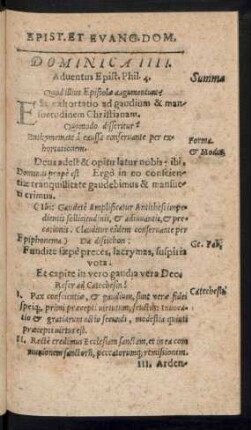 EPIST. ET EVANG. DOM.
DOMINICA IIII.
Aduentus Epist. Phil. 4.
Summa
Quod illius Epistolæ argumentum?
Est exhortatio ad gaudium & man-
suetudinem Christianam.
Quomodo disseritur?
Enthymemate à causa conseruante per ex-
hortationem.
Forma
& Modus
Deus adest & opitulatur nobis: ibi,
Dominus propè est Ergò in eo conscien-
tiæ tranquillitate gaudebimus & mansue-
ti erimus.
(Hic Gaudete amplificatur Antithesi impe-
dientis sollicitudinis, & adiuuantis, & pre-
cationis. Clauditur eodem conseruante per
Epiphonema.) Da distichon:
Gr. Pab.
Fundite sæpè preces, lacrymas, suspiria
vota:
Et capite in vero gaudia vera Deo:
Refer ad Catechesin?
Catechesis
I. Pax conscientiæ, & gaudium, sunt veræ fidei
speiq;, primi præcepti virtutum, fructus: inuoca-
tio & gratiarum actio secundi, modestia quinti
præcepti virtus est.
II. Rectè credimus Ecclesiam sanctam, et in ea com
munionem sanctorum, peccatorumq; remissionem.
III. Arden-